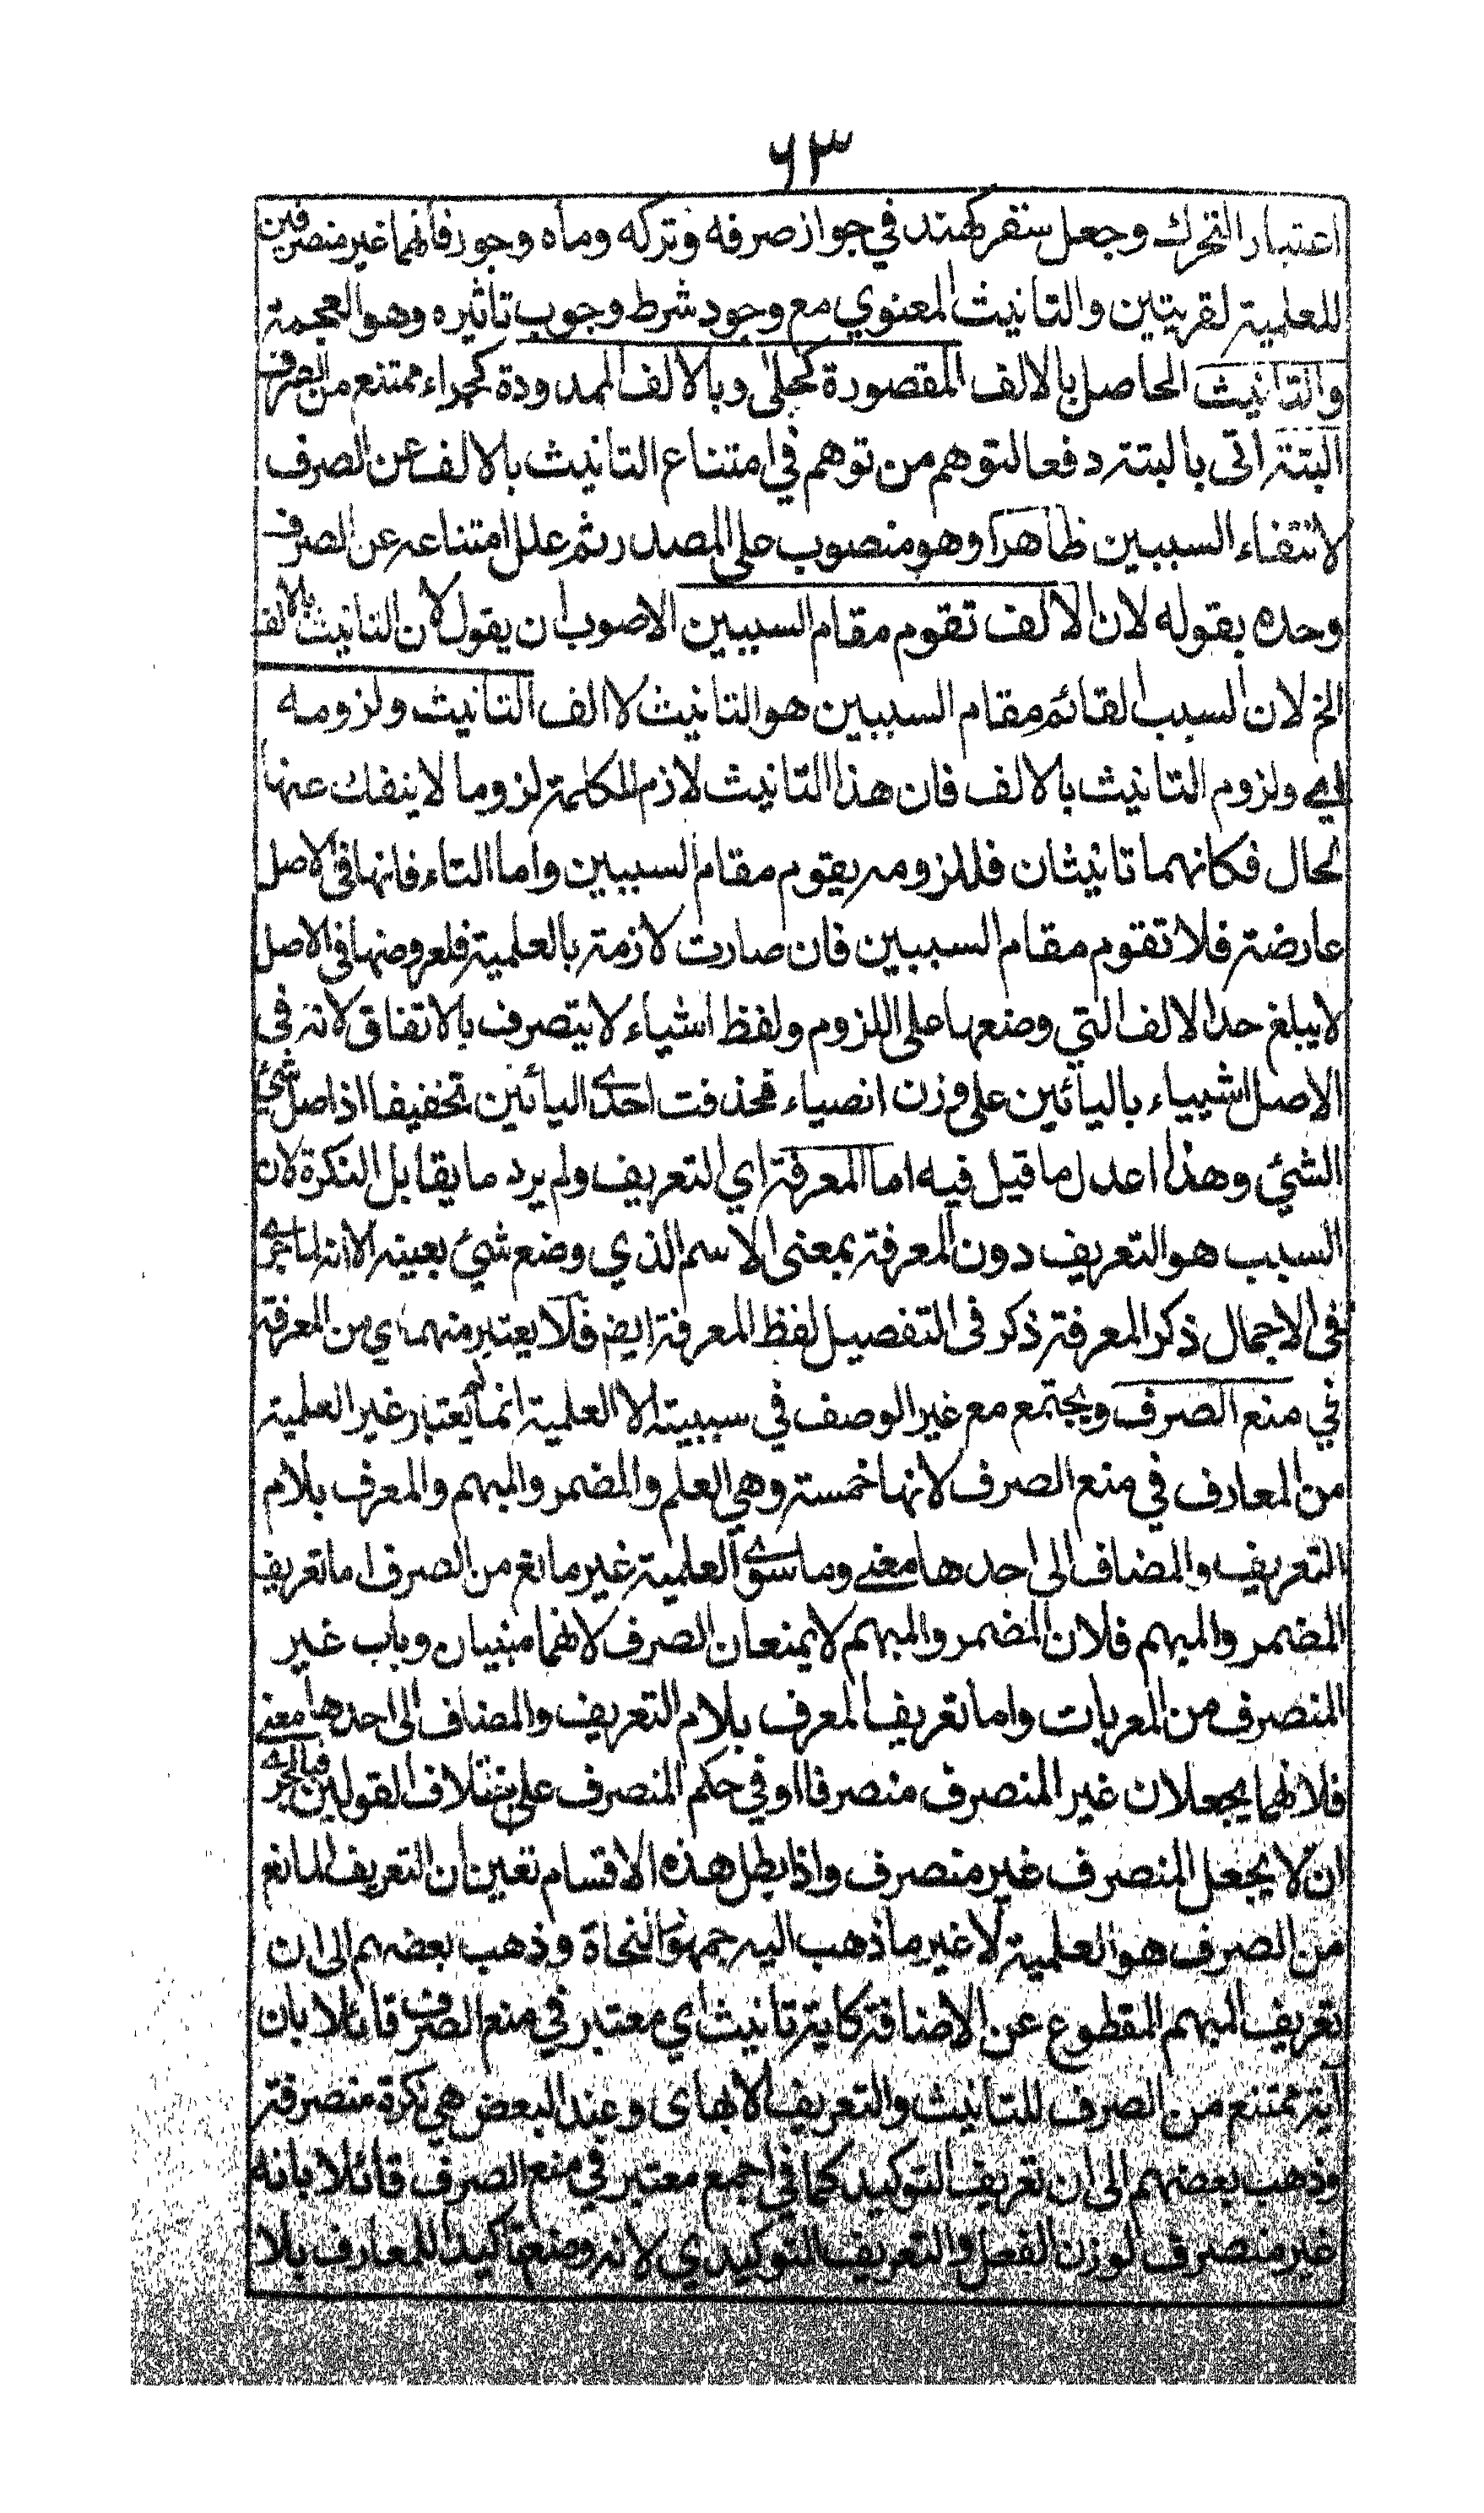 ٦٣
اعتبار التحرك وجعل سقر كهند في جواز صرفه وتركه وماه وجور فانهما غير منصرفين
للعلمية لقريتين والتانيث المعنوي مع وجود شرط وجوب تاثيره وهو العجمة
والتانيث الحاصل بالالف المقصورة كحبلى وبالالف الممدودة كحمراء ممتنع من الصرف
البتة اتى بالبتة دفعا لتوهم من توهم في امتناع التانيث بالالف عن الصرف
لانتفاء السببين ظاهرا وهو منصوب على المصدر ثم علل امتناعه عن الصرف
وحده بقوله لان الالف تقوم مقام السببين الاصوب ان يقول لان التانيث بالالف
الخ لان السبب القائم مقام السببين هو التانيث لا الف التانيث ولزومه
اي ولزوم التانيث بالالف فان هذا التانيث لازم للكلمة لزوما لا ينفك عنها
بحال فكانهما تانيثان فللزومه يقوم مقام السببين واما التاء فانها في الاصل
عارضة فلا تقوم مقام السببين فان صارت لازمة بالعلمية فلعروضها في الاصل
لا يبلغ حد الالف التي وضعها على اللزوم ولفظ اشياء لا يتصرف بالاتفاق لانه في
الاصل اشيياء باليائين على وزن انصياء فحذفت احدى اليائين تخفيفا اذ اصل شيئ
الشيئ وهذا اعدل ما قيل فيه اما المعرفة اي التعريف ولم يرد ما يقابل النكرة لان
السبب هو التعريف دون المعرفة بمعنى الاسم الذي وضع شيئ بعينه الا انه لما جرى
في الاجمال ذكر المعرفة ذكر في التفصيل لفظ المعرفة ايض فلا يعتبر منهما اي من المعرفة
في منع الصرف ويجتمع مع غير الوصف في سببيته الا العلمية انما لم يعتبار غير العلمية
من المعارف في منع الصرف لانها خمسة وهي العلم والمضمر والمبهم والمعرف بلام
التعريف والمضاف الى احدها معنى وما سوى العلمية غير مانع من الصرف اما تعريف
المضمر والمبهم فلان المضمر والمبهم لا يمنعان الصرف لانهما مبنيان وباب غير
المنصرف من المعربات واما تعريف المعرف بلام التعريف والمضاف الى احدها معنى
فلانهما يجعلان غير المنصرف منصرفا او في حكم المنصرف على اختلاف القولين فبالحرى
ان لا يجعل المنصرف غير منصرف واذا بطل هذه الاقسام تعين ان التعريف المانع
من الصرف هو العلمية لا غير ما ذهب اليه جمهور النحاة وذهب بعضهم الى ان
تعريف المبهم المقطوع عن الاضافة كاية تانيث اي معتبر في منع الصرف قائلا بان
اية ممتنع من الصرف للتانيث والتعريف الابهاى وعند البعض هي نكرة منصرفة
وذهب بعضهم الى ان تعريف التوكيد كما في اجمع معتبر في منع الصرف قائلا بانه
غير منصرف لوزن الفعل والتعريف التوكيدي لانه وضع تاكيدا للمعارف بلا